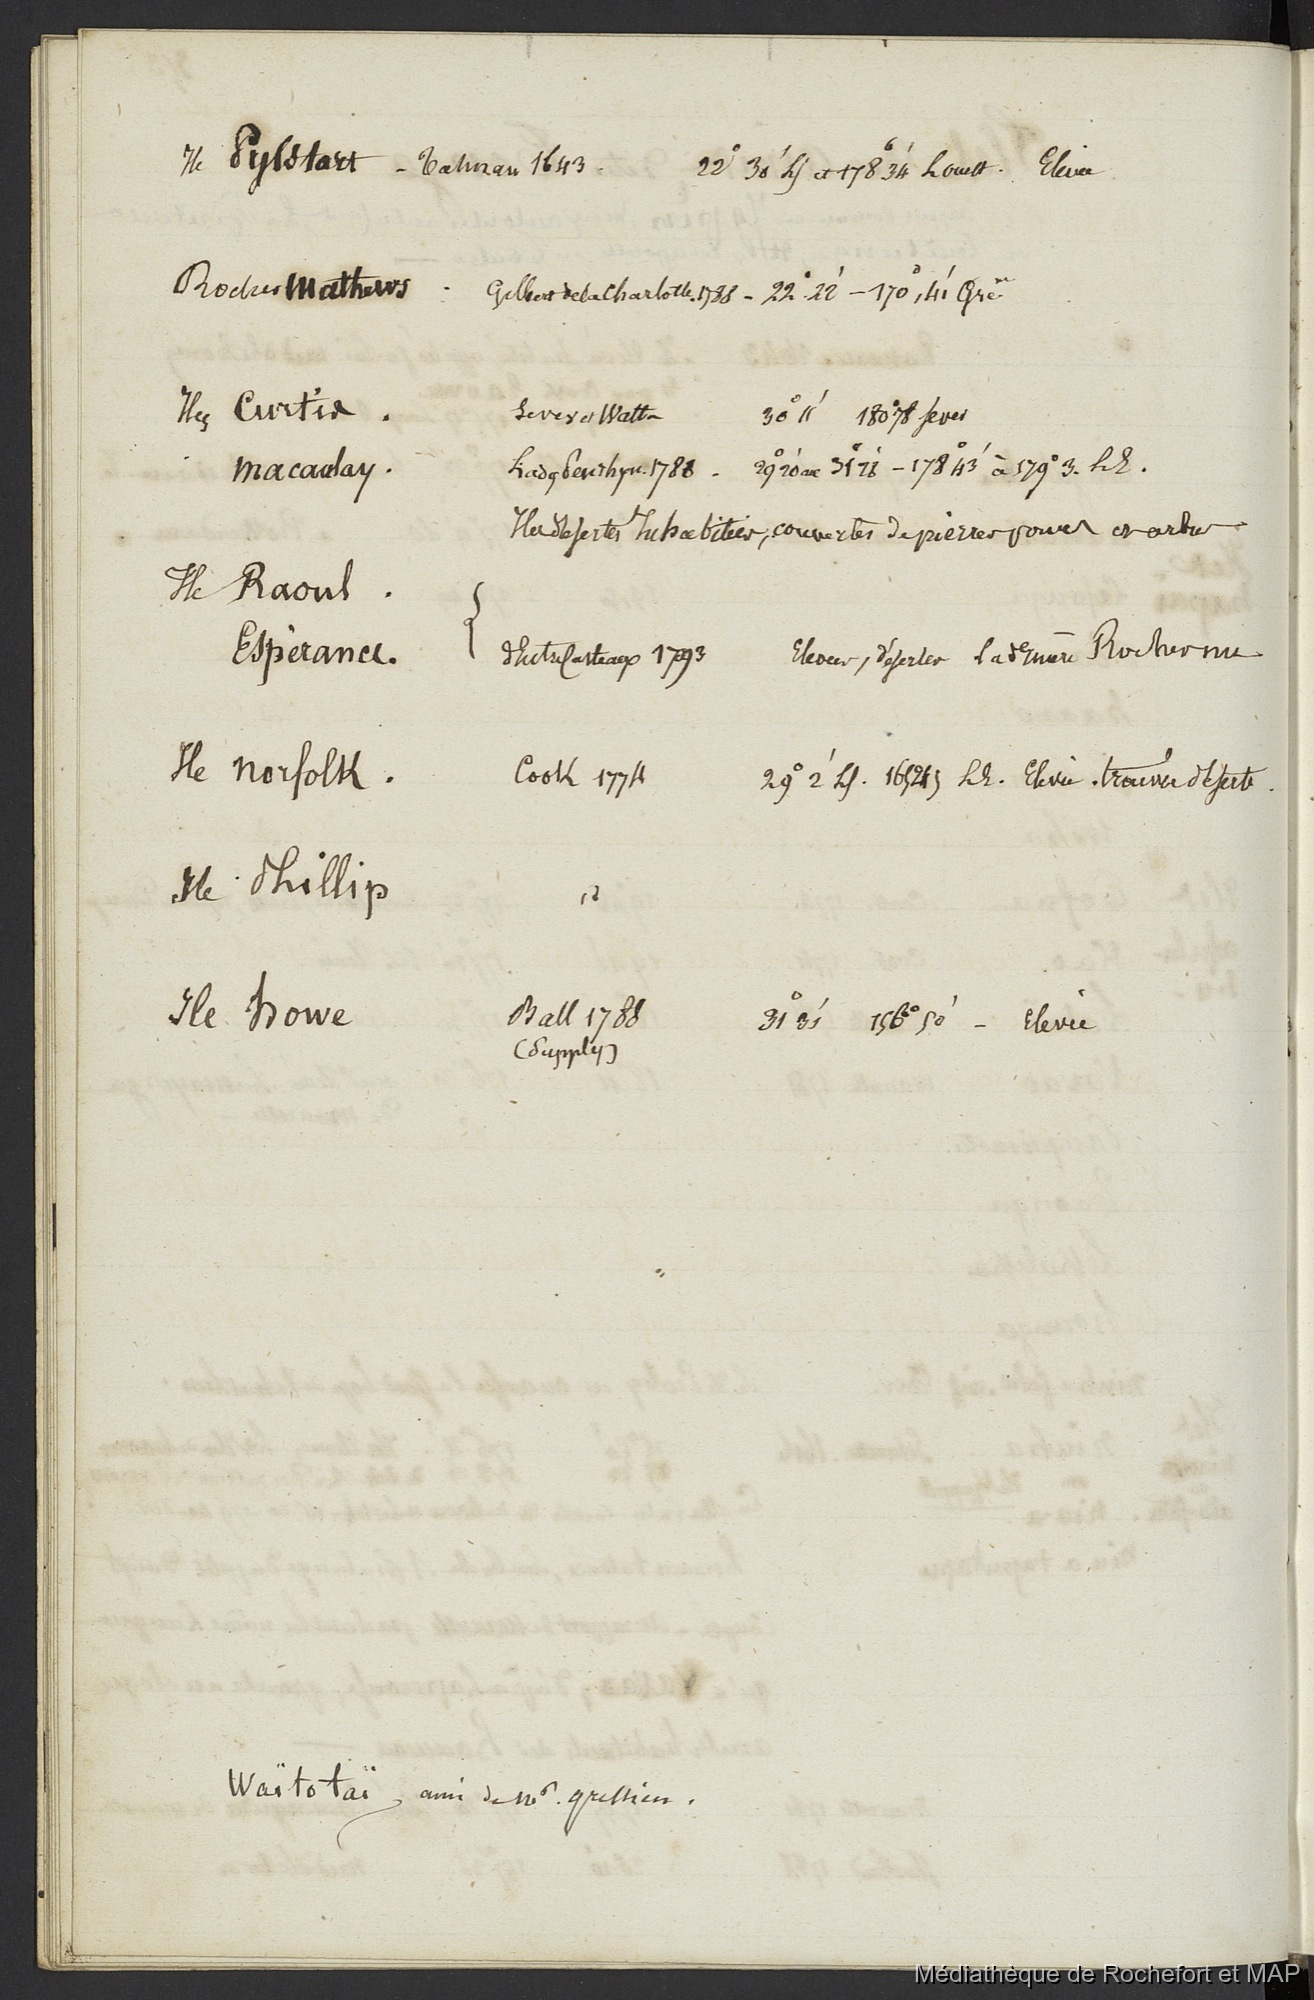 Ile Pylstart - Tasman 1643. 22° 30' LS et 178° 34' L ouest. Elevée
Rocher Mathews - Gilbert de la Charlotte. 1788 - 22° 22' - 170°, 41' Gre
Iles Curtis. Sever et Watt 30° 11' 180° 78 sever
Macaulay. Lady Penrhyn. 1788 - 29° 20' au 31° 28' - 178° 43' à 179° 3. LE.
Iles désertes Inhabitées, couvertes de pierres ponces et arbres
Ile Raoul.
Espérance. { d'Entrecasteaux 1793 Elevées, désertes la dernière Rocher nu
Ile Norfolk. Cook 1774 29° 2' LS. 165° 45 LE. Elevée. trouvée déserte.
Ile Phillip id
Ile howe Ball 1788 31° 31' 156° 50' - Elevée
(Supply)
Waïtotaï, ami de Mr. gressien.
Médiathèque de Rochefort et MAP